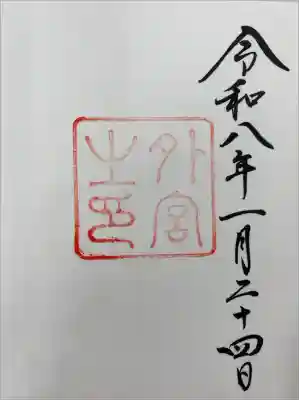 令和八年一月二十四日
外宮
之印